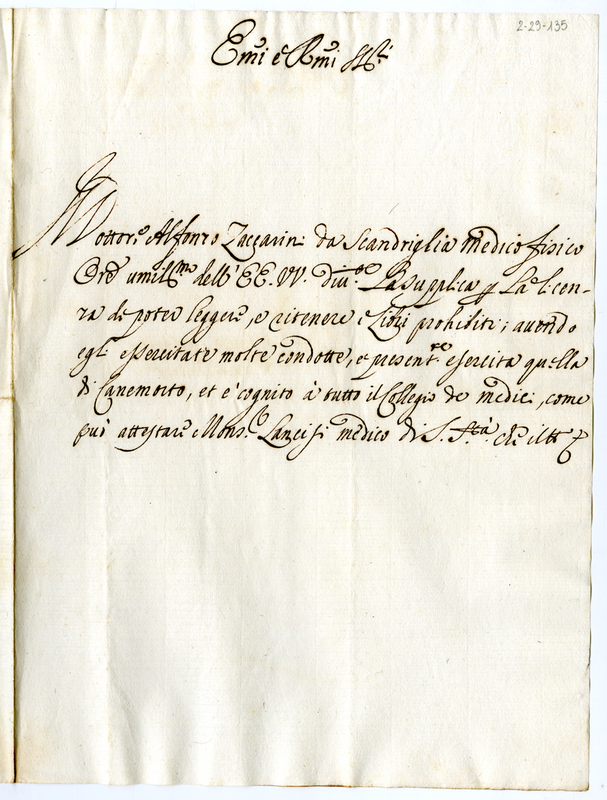 2-29-135
Emi e Rmi SSri
Dottore Alfonzo Zaccarini da Scandriglia Medico fisico
Ore umilmo dell' EE. VV. divte La supplica p La licen-
za di poter leggere, e ritenere i Libri prohibiti; avendo
egli essercitate molte condotte, e presente esercita quella
di Canemorto, et è cognito à tutto il Collegio de medici, come
può attestare Monse Lancisi medico di S. Stà. che il tt